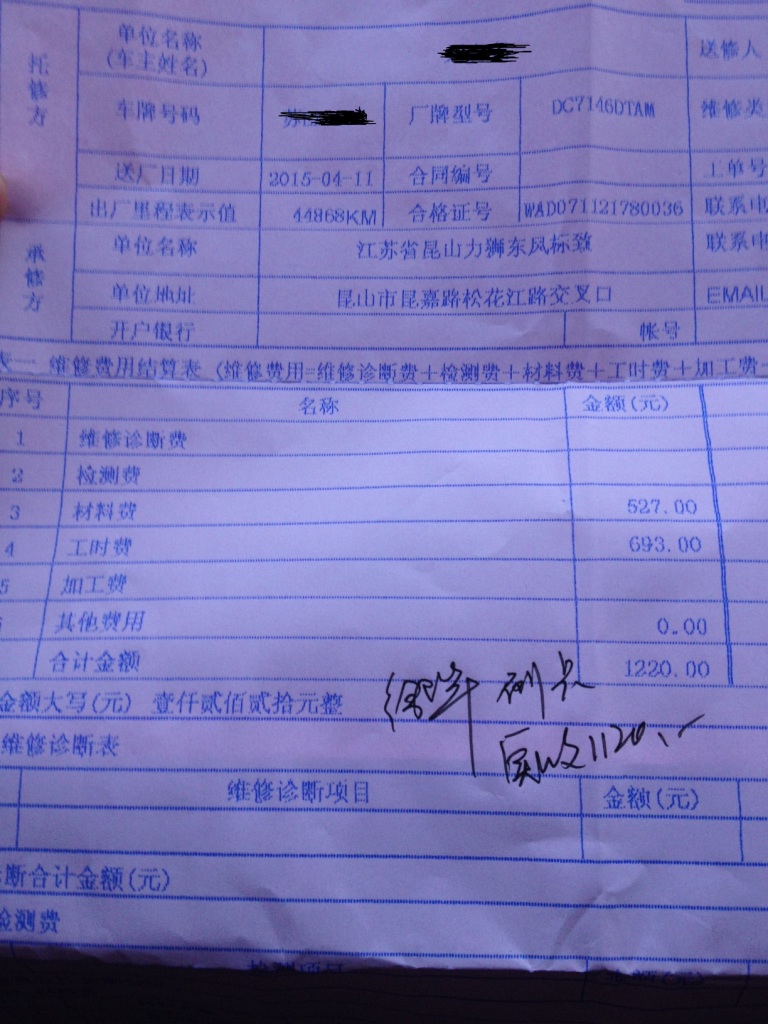 托修方
单位名称
(车主姓名)
送修人
车牌号码 苏 厂牌型号 DC7146DTAM 维修类
送厂日期 2015-04-11 合同编号 工单号
出厂里程表示值 44868KM 合格证号 WAD071121780036 联系电
承修方
单位名称 江苏省昆山力狮东风标致 联系电
单位地址 昆山市昆嘉路松花江路交叉口 EMAIL
开户银行 帐号
表一 维修费用结算表 (维修费用=维修诊断费+检测费+材料费+工时费+加工费+
序号 名称 金额(元)
1 维修诊断费
2 检测费
3 材料费 527.00
4 工时费 693.00
5 加工费
6 其他费用 0.00
合计金额 1220.00
金额大写(元) 壹仟贰佰贰拾元整
刷卡
实收1120
维修诊断表
维修诊断项目 金额(元)
诊断合计金额(元)
检测费
检测项目 金额(元)